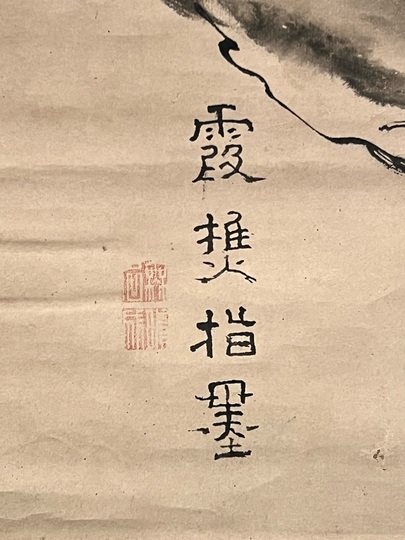 霞樵指墨